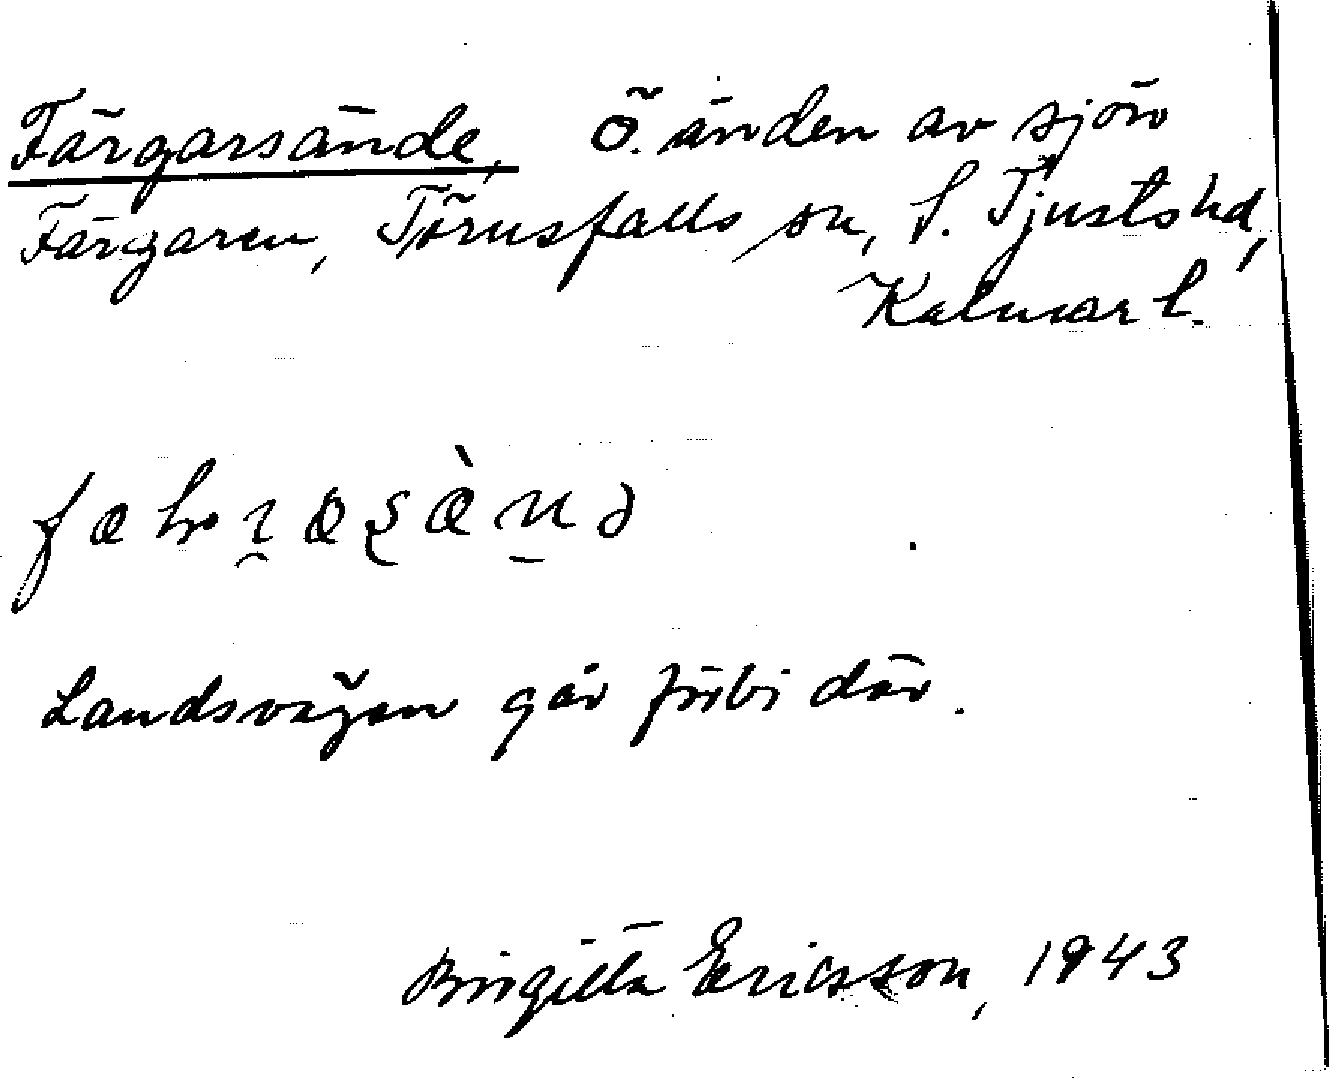 Färgarsände, Ö. änden av sjön
Färgaren, Törnsfalls sn, S. Tjusts hd,
Kalmar l.
Landsvägen går förbi där.
Birgitta Ericsson, 1943